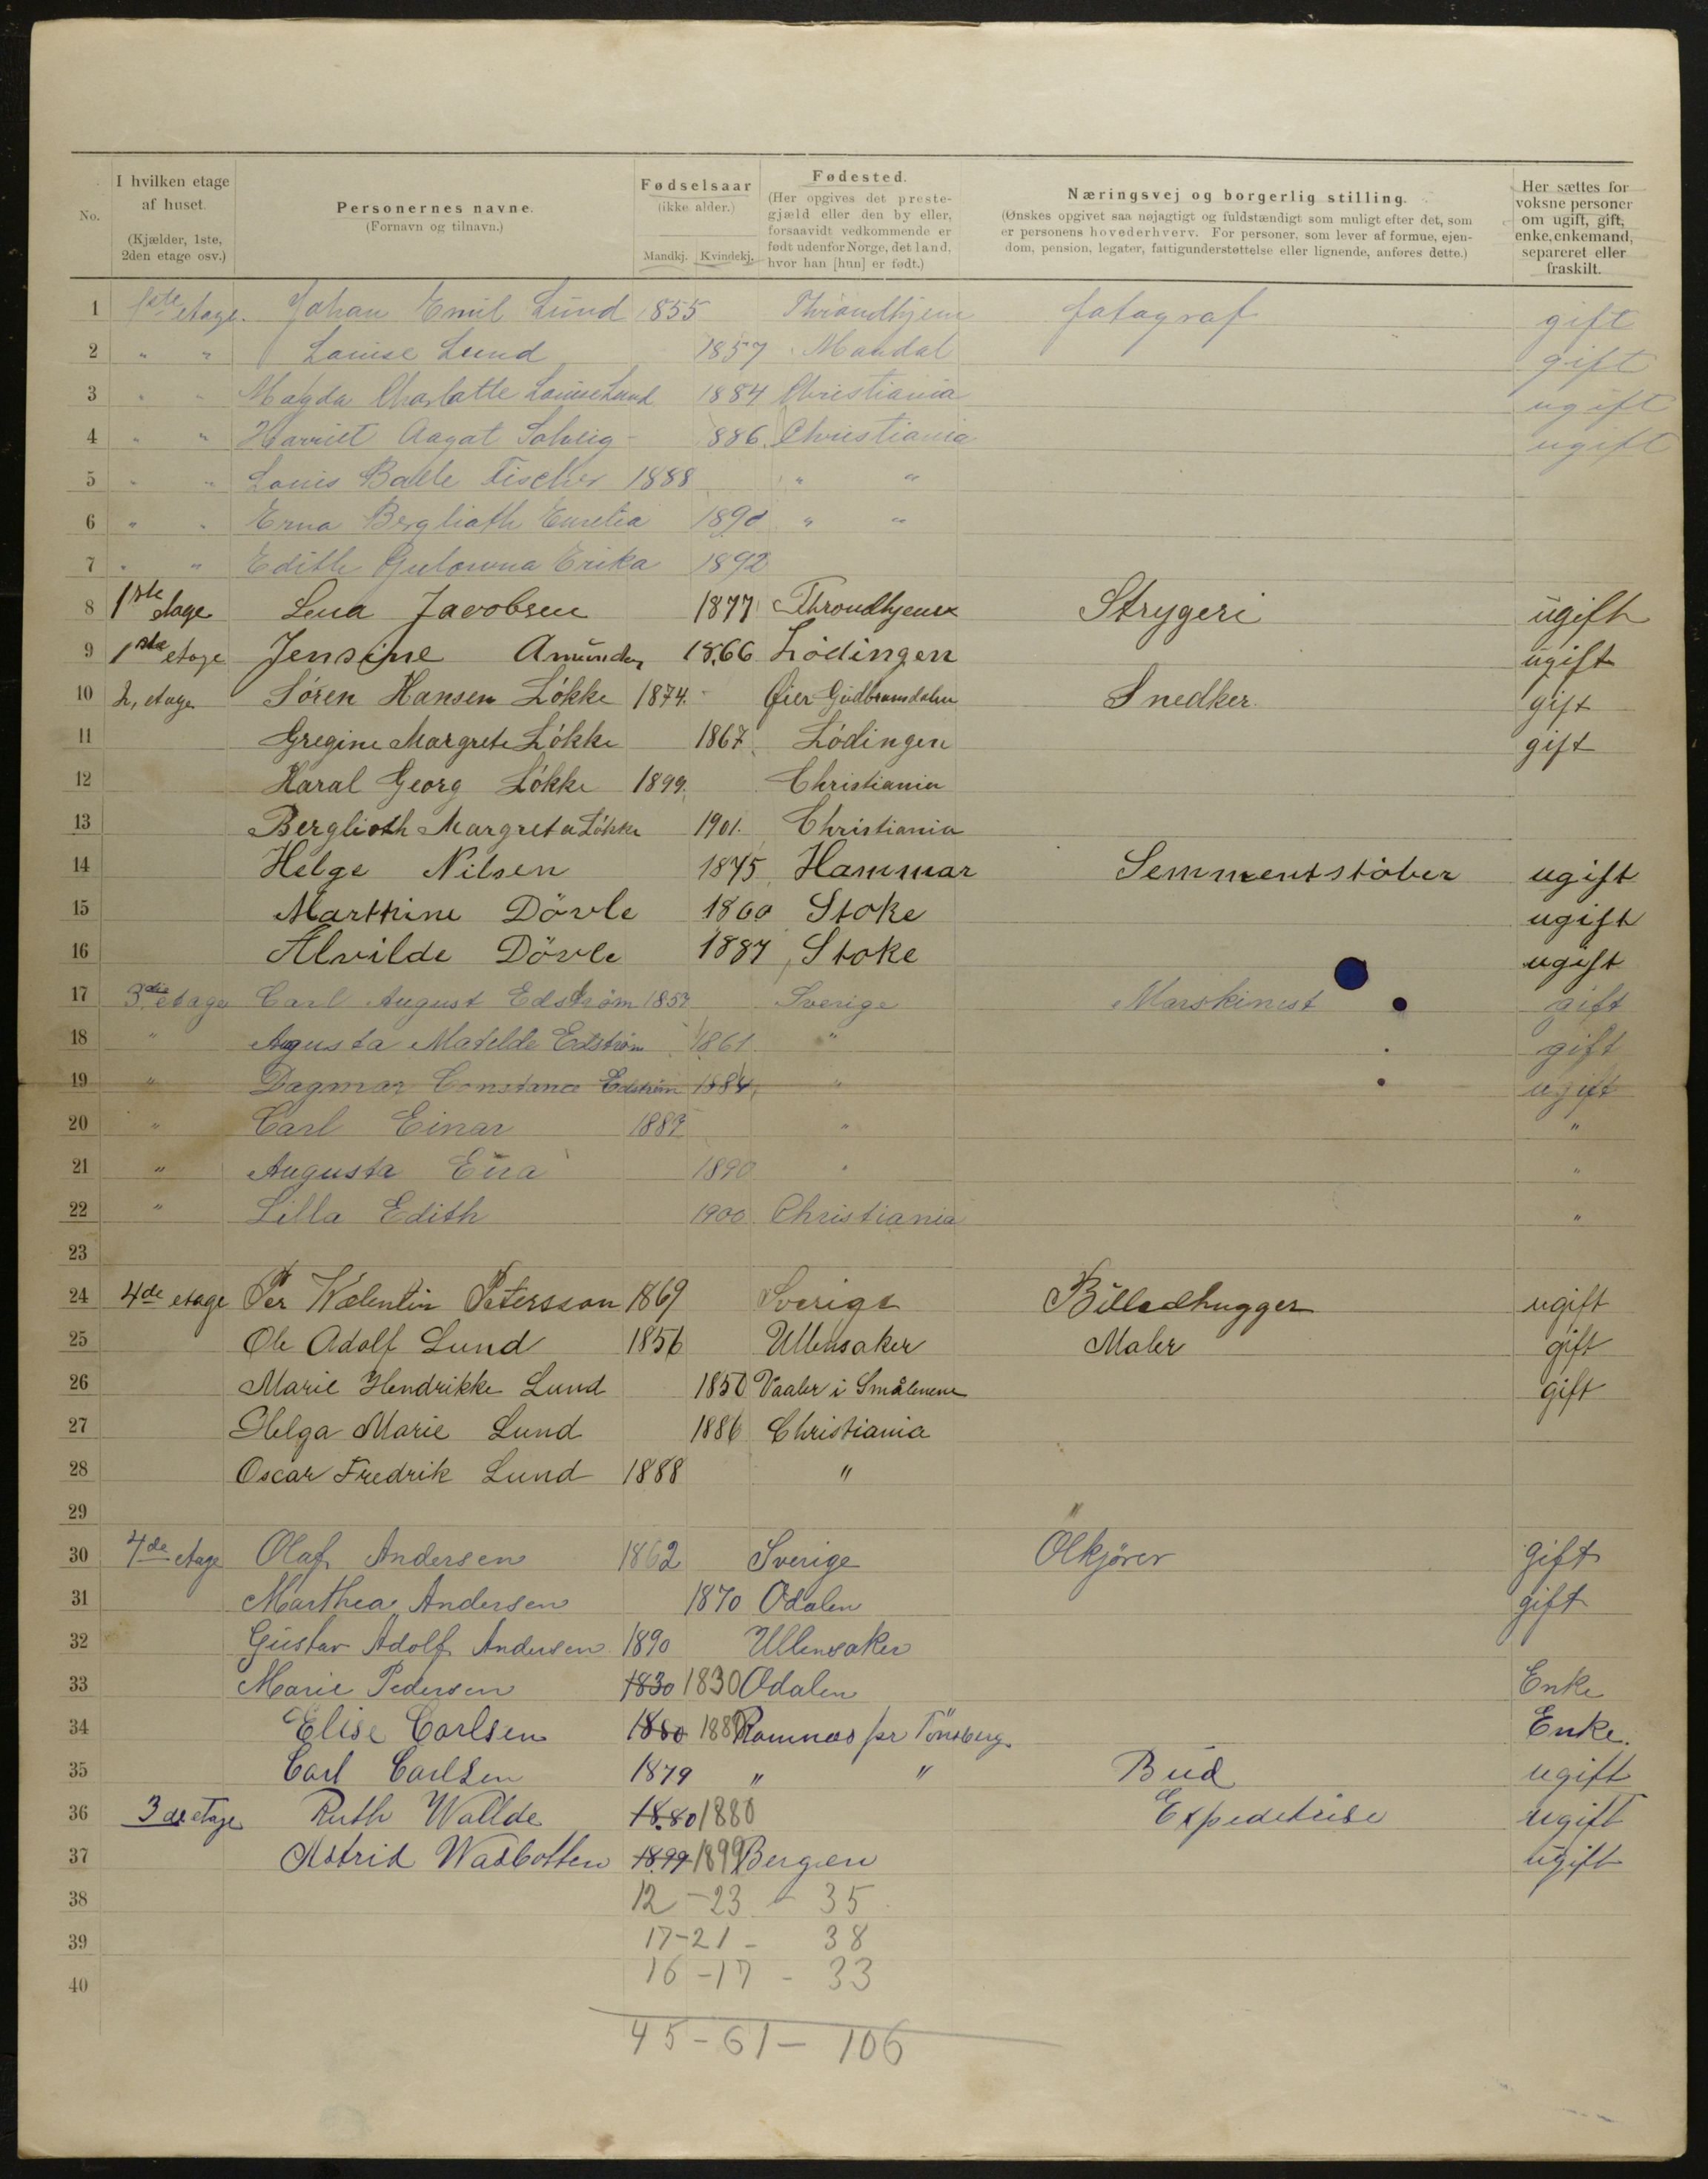 No.
I hvilken etage af huset.
(Kjælder, 1ste, 2den etage osv.)
Personernes navne.
(Fornavn og tilnavn.)
Fødselsaar
(ikke alder.)
Mandkj. Kvindekj.
Fødested.
(Her opgives det prestegjæld eller den by eller, forsaavidt vedkommende er født udenfor Norge, det land, hvor han [hun] er født.)
Næringsvej og borgerlig stilling.
(Ønskes opgivet saa nøjagtigt og fuldstændigt som muligt efter det, som er personens hovederhverv. For personer, som lever af formue, ejendom, pension, legater, fattigunderstøttelse eller lignende, anføres dette.)
Her sættes for voksne personer om ugift, gift, enke, enkemand, separeret eller fraskilt.
1 1ste etage. Johan Emil Lund 1855 Throndhjem fotograf gift
2 " " Louise Lund 1857 Mandal gift
3 " " Magda Charlotte Louise Lund 1884 Christiania ugift
4 " " Harriet Aagot Solveig - 1886. Christiania ugift
5 " " Louis Balle Fischer 1888 " "
6 " " Erna Berglioth 1890 " "
7 " " Edith Erika 1892
8 1ste etage Lena Jacobsen 1877 Throndhjem Strygeri ugift
9 1ste etage Jensine Amundsen 1866 Lödingen ugift
10 2, etage Sören Hansen Lökke 1874. Øier Gudbransdalen Snedker. gift
11 Gregine Margrete Lökke 1867 Lödingen gift
12 Haral Georg Lökke 1899. Christiania
13 Berglioth Margreta Lökke 1901. Christiania
14 Helge Nilsen 1875 Hammar Semmentstöber ugift
15 Marthine Dövle 1860 Stoke ugift
16 Alvilde Dövle 1887 Stoke ugift
17 3die etage Carl August Edström 1857 Sverige Marskinist gift
18 " Augusta Matelde Edström 1861 " gift
19 " Dagmar Constance Edström 1884, " ugift
20 " Carl Einar 1887 " "
21 " Augusta 1890 " "
22 " Lilla Edith 1900 Christiania "
23
24 4de etage Per Walentin Petersson 1869 Sverige Billedhugger ugift
25 Ole Adolf Lund 1856 Ullensaker Maler gift
26 Marie Hendrikke Lund 1850 Vaaler i Smålenene gift
27 Helga Marie Lund 1886 Christiania
28 Oscar Fredrik Lund 1888 "
29
30 4de etage Olaf Andersen 1862 Sverige Ölkjörer gift
31 Marthea Andersen 1870 Odalen gift
32 Gustav Adolf Andersen 1890 Ullensaker
33 Marie Pedersen 1830 1830 Odalen Enke
34 Elise Carlsen 1880 188 Ramnæs pr Tönsberg. Enke.
35 Carl Carlsen 1879 " " Bud ugift
36 3de etage Ruth Wallde 1880 1880 Expeditrise ugift
37 Astrid Wadbotten 1899 1899 Bergen ugift
38 12 - 23 - 35
39 17 - 21 - 38
40 16 - 17 - 33
45 - 61 - 106